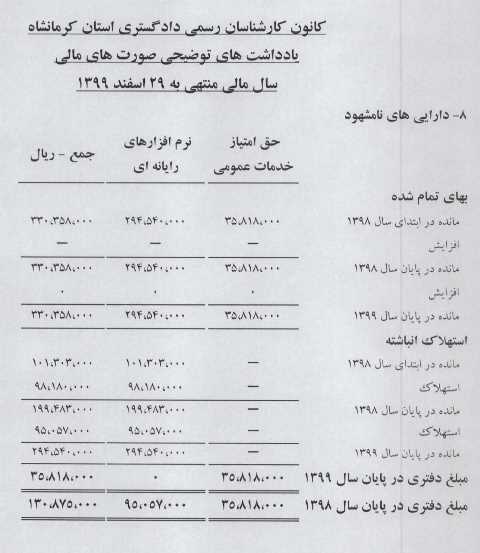 کانون کارشناسان رسمی دادگستری استان کرمانشاه
یادداشت های توضیحی صورت های مالی
سال مالی منتهی به ۲۹ اسفند ۱۳۹۹
۸- دارایی های نامشهود
حق امتیاز خدمات عمومی نرم افزارهای رایانه ای جمع - ریال
بهای تمام شده
مانده در ابتدای سال ۱۳۹۸ ۳۵،۸۱۸،۰۰۰ ۲۹۴،۵۴۰،۰۰۰ ۳۳۰،۳۵۸،۰۰۰
افزایش — — —
مانده در پایان سال ۱۳۹۸ ۳۵،۸۱۸،۰۰۰ ۲۹۴،۵۴۰،۰۰۰ ۳۳۰،۳۵۸،۰۰۰
افزایش ۰ ۰ ۰
مانده در پایان سال ۱۳۹۹ ۳۵،۸۱۸،۰۰۰ ۲۹۴،۵۴۰،۰۰۰ ۳۳۰،۳۵۸،۰۰۰
استهلاک انباشته
مانده در ابتدای سال ۱۳۹۸ — ۱۰۱،۳۰۳،۰۰۰ ۱۰۱،۳۰۳،۰۰۰
استهلاک — ۹۸،۱۸۰،۰۰۰ ۹۸،۱۸۰،۰۰۰
مانده در پایان سال ۱۳۹۸ — ۱۹۹،۴۸۳،۰۰۰ ۱۹۹،۴۸۳،۰۰۰
استهلاک — ۹۵،۰۵۷،۰۰۰ ۹۵،۰۵۷،۰۰۰
مانده در پایان سال ۱۳۹۹ — ۲۹۴،۵۴۰،۰۰۰ ۲۹۴،۵۴۰،۰۰۰
مبلغ دفتری در پایان سال ۱۳۹۹ ۳۵،۸۱۸،۰۰۰ ۰ ۳۵،۸۱۸،۰۰۰
مبلغ دفتری در پایان سال ۱۳۹۸ ۳۵،۸۱۸،۰۰۰ ۹۵،۰۵۷،۰۰۰ ۱۳۰،۸۷۵،۰۰۰